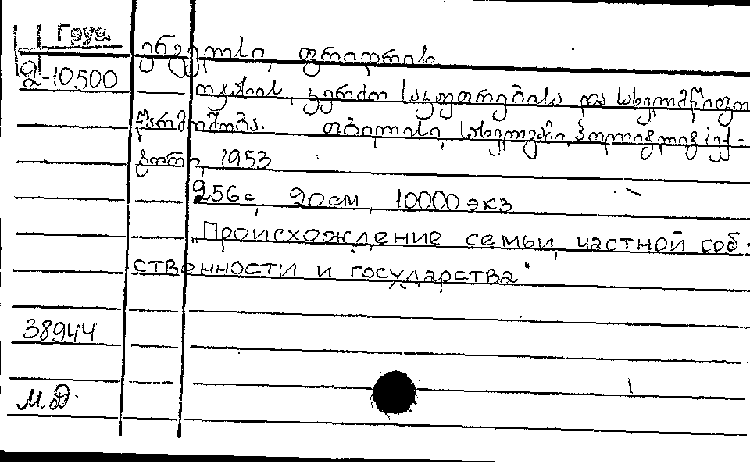 ენგელსი, ფრიდრიხ
2-10500
ოჯახის, კერძო საკუთრებისა და სახელმწიფო
წარმოშობა. თბილისი, სახელგამი, პოლიგრაფ
1953
256с, 20см, 10000 экз
„Происхождение семьи, частной соб-
ственности и государства"
38944
М.Д.